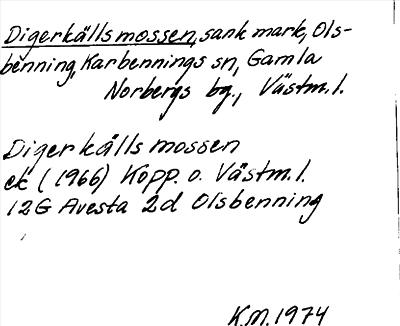 Digerkällsmossen, sank mark, Ols-
benning, Karbennings sn, Gamla
Norbergs bg., Västm.l.
Digerkällsmossen
ek (1966) Kopp. o. Västm.l.
12G Avesta 2d Olsbenning
K.M. 1974